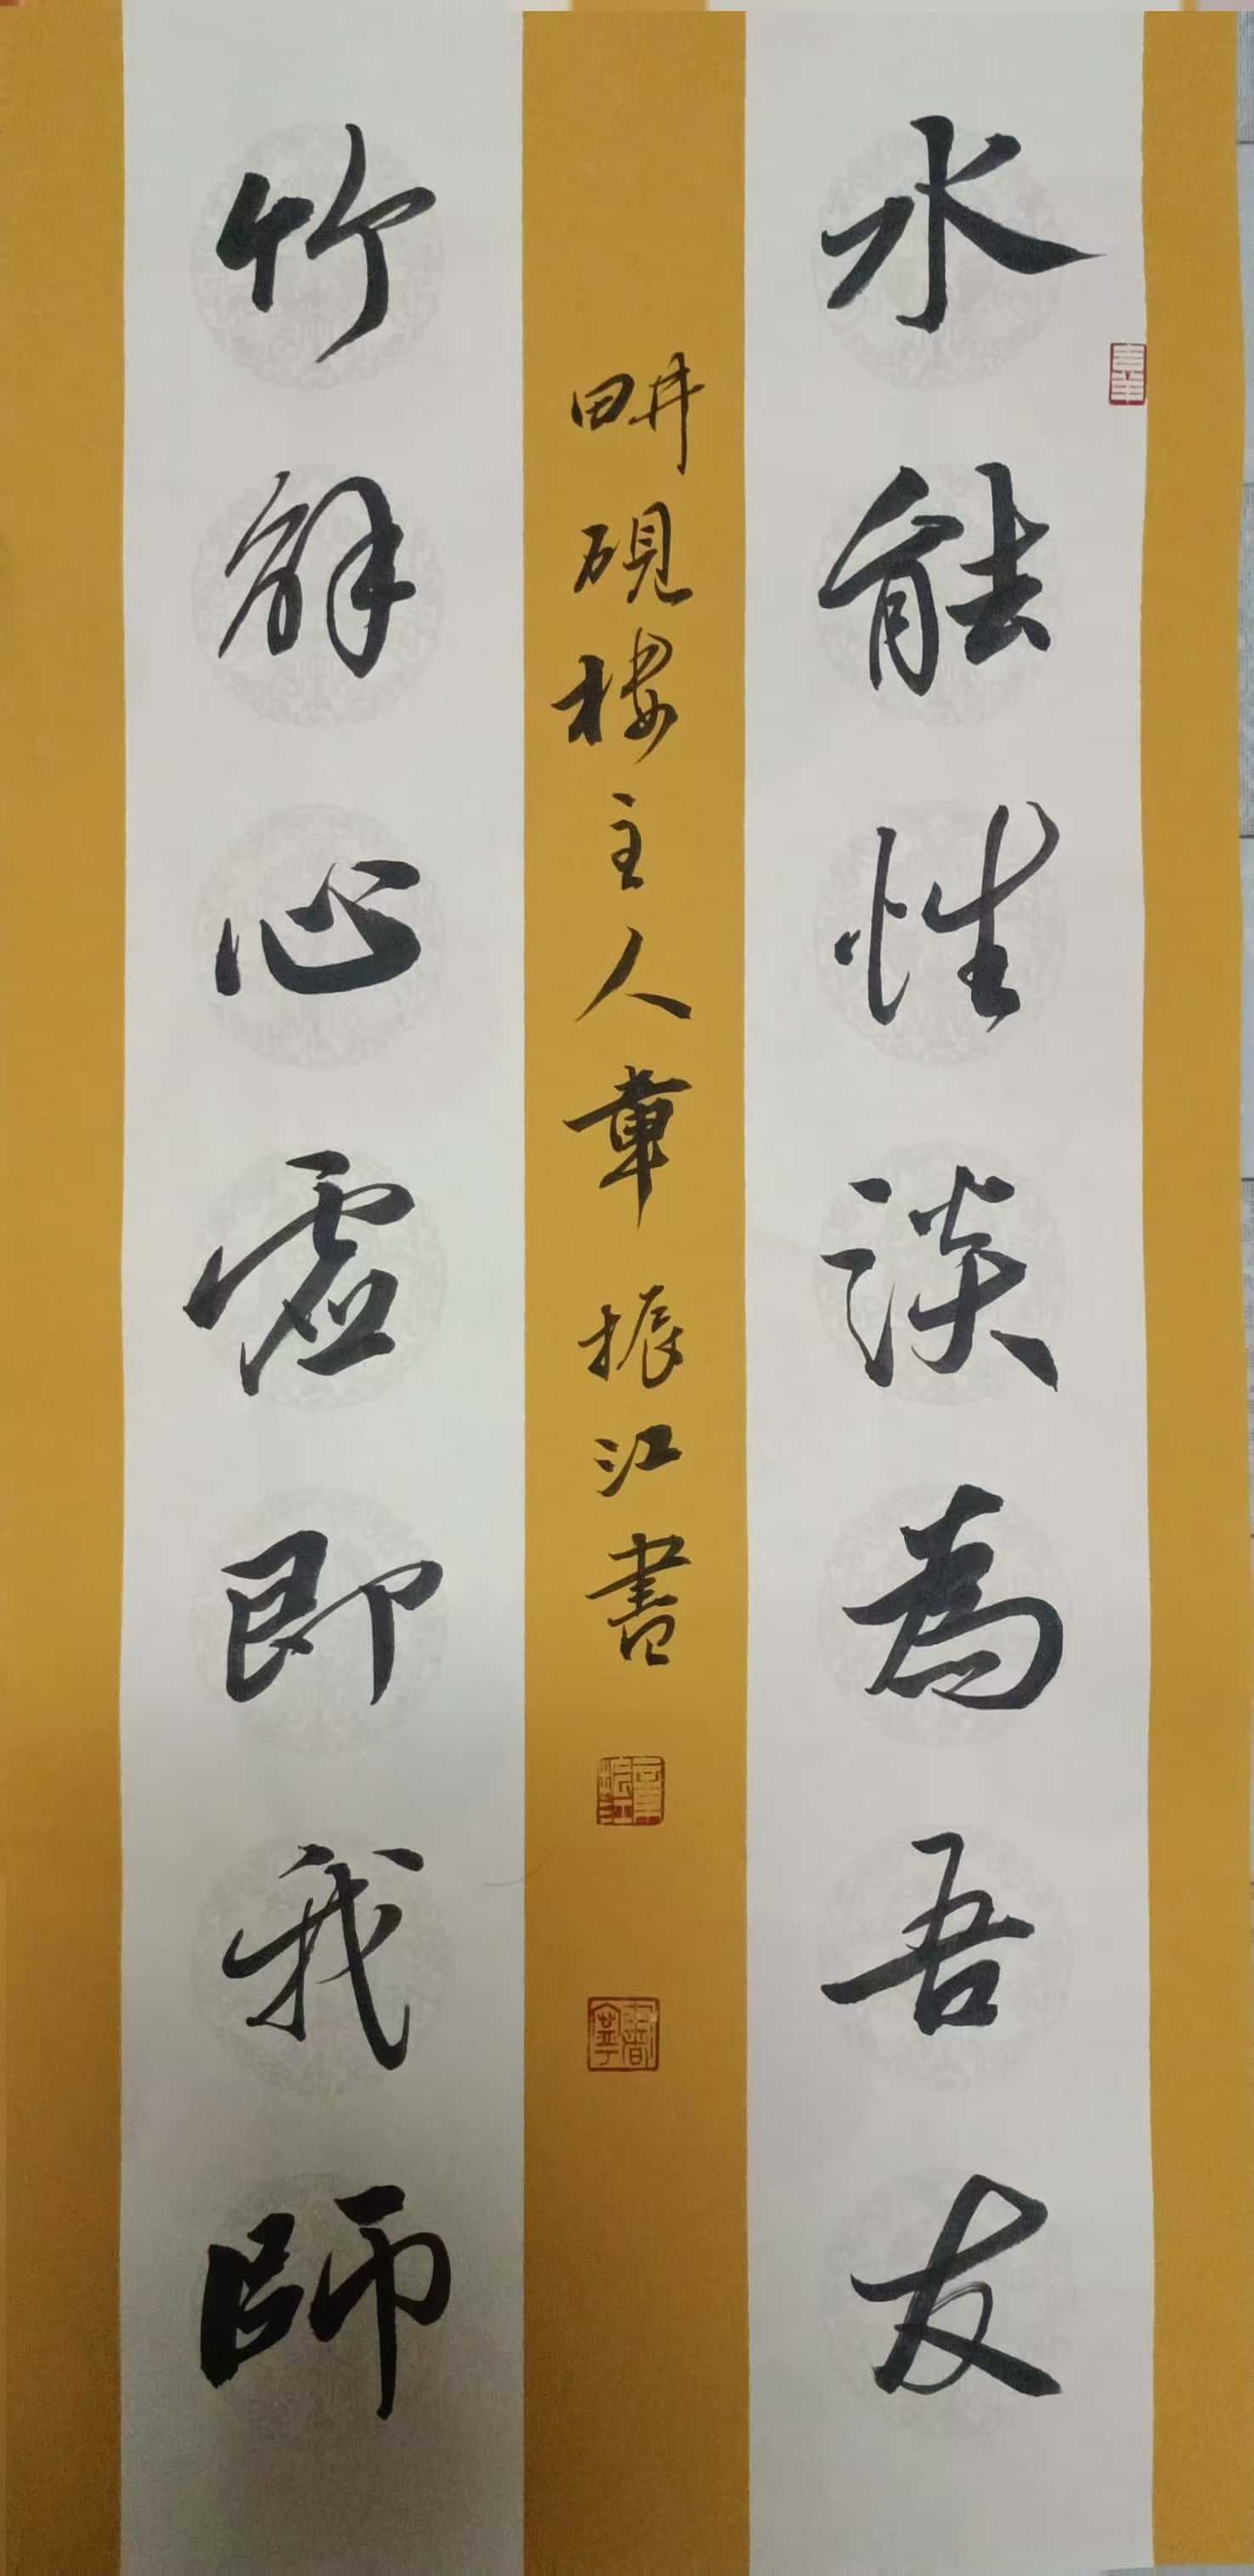 水能性淡為吾友
竹解心虛即我師
畊硯樓主人章振江書